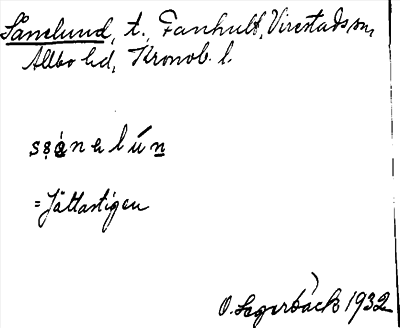 Sånelund, t., Fanhult, Virestads sn,
Allbo hd, Kronob. l.
sɑ́nɑlún
= Jättastigen
O. Lagerbäck 1932